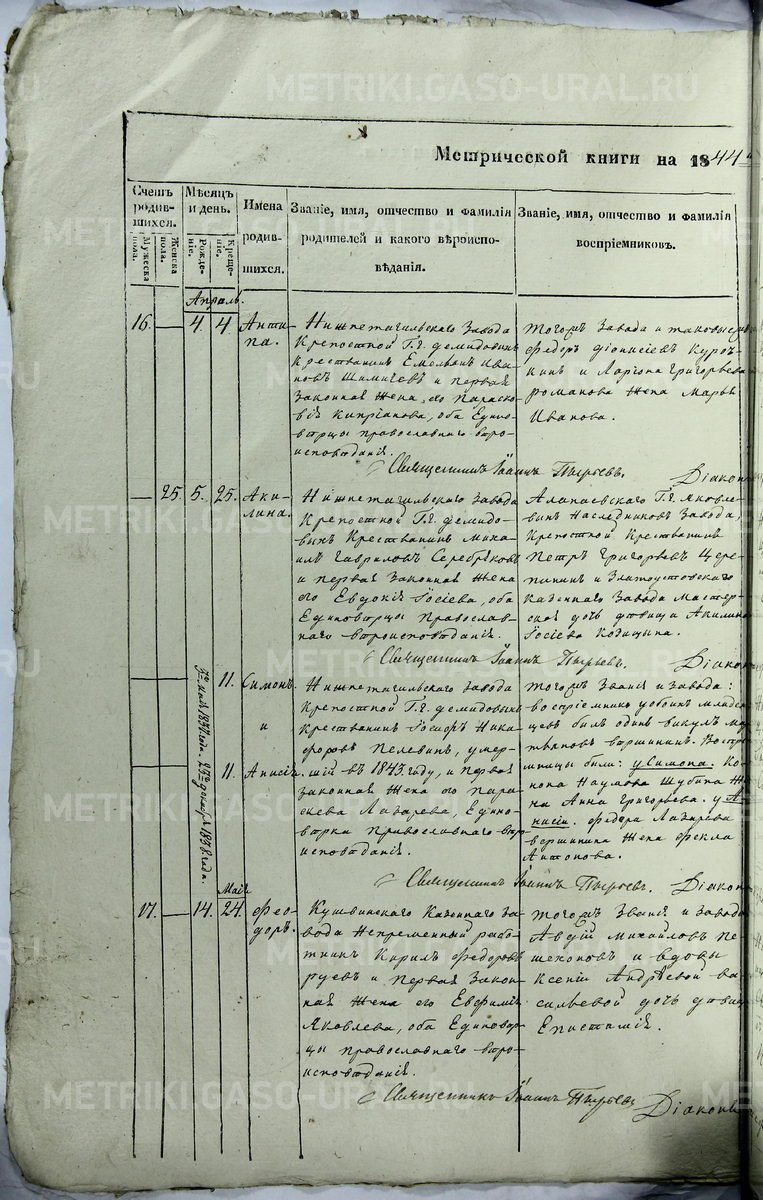 METRIKI.GASO-URAL.RU
Метрической книги на 1844
Счетъ родив-шихся.
Мужеска пола.
Женска пола.
Мѣсяцъ и день.
Рожде-ніе.
Креще-ніе.
Имена родив-шихся.
Званіе, имя, отчество и фамилія
родителей и какого вѣроиспо-
вѣданія.
Званіе, имя, отчество и фамилія
воспріемниковъ.
Апрель.
16. — 4. 4. Анти-
па.
Нижнетагильскаго Завода
Крепостной Г.г. Демидовыхъ
Крестьянинъ Емельянъ Ива
новъ и первая
Законная жена его Параско-
вія Кипріанова, оба Едино-
вѣрцы православнаго вѣро-
исповѣданія.
тогожъ Завода и таковые
Федоръ Діонисіевъ Куроч-
кинъ и Ларіона Григорьева
Романова жена Марья
Иванова.
Священникъ Іоаннъ Пырьевъ. Діаконъ
— 25. 5. 25. Аки-
лина.
Нижнетагильскаго Завода
Крепостной Г.г. Демидо-
выхъ Крестьянинъ Миха-
илъ Гавриловъ Серебряковъ
и первая Законная жена
его Евдокія Іосіева, оба
Единовѣрцы Православ-
наго вѣроисповѣданія.
Алапаевскаго Г.г. Яковле-
выхъ Наследниковъ Завода,
Крепостной Крестьянинъ
Петръ Григорьевъ Чере-
панинъ и Златоустовскаго
Казеннаго Завода Мастер-
ская дочь девица Акилина
Іосіева
Священникъ Іоаннъ Пырьевъ. Діаконъ
11. Симонъ
и
11. Анисія.
Нижнетагильскаго Завода
Крепостной Г.г. Демидовыхъ
Крестьянинъ Іосифъ Ники-
форовъ Пелевинъ, умер-
шій въ 1843. году, и первая
законная жена его Пара-
скева Лазарева, Едино-
вѣрка Православнаго вѣро-
исповѣданія.
тогожъ Званія и завода:
воспріемникъ у обоихъ младен-
цевъ былъ одинъ Викулъ
Вершининъ. Воспрі-
емницы были: у Симона. Ко-
нона Наумова Шубина же-
на Анна Григорьева. у А-
нисіи. Федора Лазарева
Вершинина жена Фекла
Антонова.
Священникъ Іоаннъ Пырьевъ. Діаконъ
Маія
17. — 14. 24. Фео-
доръ.
Кушвинскаго Казеннаго за-
вода Непременный рабо-
тникъ Кирилъ Федоровъ
Руевъ и Первая Закон-
ная жена его Евфимія
Яковлева, оба Единовѣр-
цы православнаго вѣро-
исповѣданія.
тогожъ Званія и завода
Авдій Михайловъ Пе-
шехоновъ и вдовы
Ксеніи Андрѣевой Ва-
сильевой дочь девица
Епистимія.
Священникъ Іоаннъ Пырьевъ Діаконъ